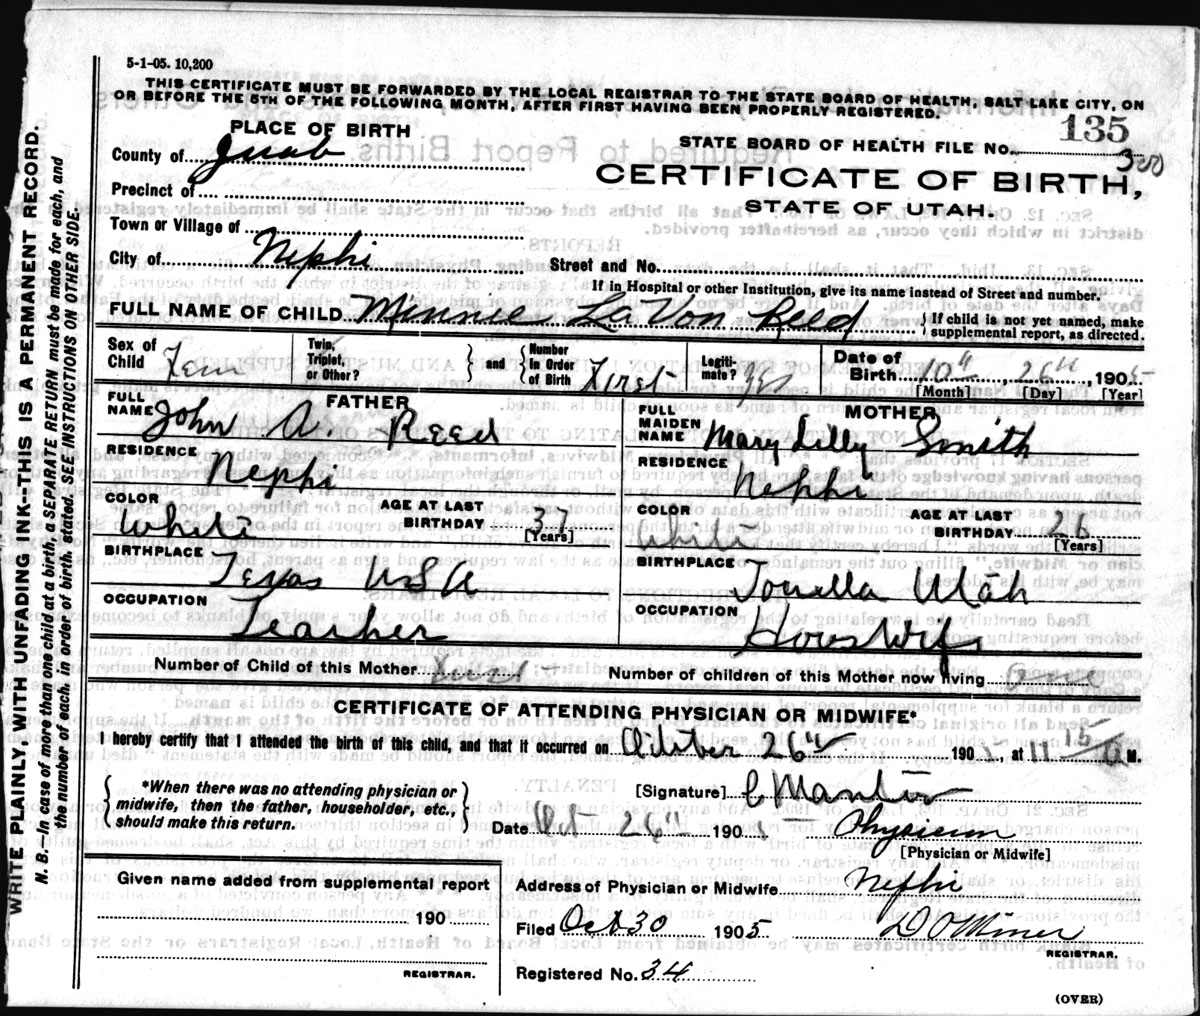 5-1-05. 10,200
THIS CERTIFICATE MUST BE FORWARDED BY THE LOCAL REGISTRAR TO THE STATE BOARD OF HEALTH, SALT LAKE CITY, ON
OR BEFORE THE 5TH OF THE FOLLOWING MONTH, AFTER FIRST HAVING BEEN PROPERLY REGISTERED.
WRITE PLAINLY, WITH UNFADING INK--THIS IS A PERMANENT RECORD.
N. B. In case of more than one child at a birth, a SEPARATE RETURN must be made for each, and
the number of each, in order of birth, stated. SEE INSTRUCTIONS ON OTHER SIDE.
PLACE OF BIRTH
County of Juab
Precinct of
Town or Village of
City of Nephi
STATE BOARD OF HEALTH FILE No. 135
300
CERTIFICATE OF BIRTH,
STATE OF UTAH.
Street and No.
If in Hospital or other Institution, give its name instead of Street and number.
FULL NAME OF CHILD Minnie La Von Reed
If child is not yet named, make
supplemental report, as directed.
Sex of Child Fem
Twin, Triplet, or Other?
and Number in Order of Birth First
Legiti-mate? yes
Date of Birth 10th, 26th, 1905
[Month] [Day] [Year]
FATHER
FULL NAME John A. Reed
RESIDENCE Nephi
COLOR White
AGE AT LAST BIRTHDAY 37
[Years]
BIRTHPLACE Texas USA
OCCUPATION Teacher
MOTHER
FULL MAIDEN NAME Mary Lilly Smith
RESIDENCE Nephi
COLOR White
AGE AT LAST BIRTHDAY 26
[Years]
BIRTHPLACE Touella Utah
OCCUPATION HousWife
Number of Child of this Mother First
Number of children of this Mother now living One
CERTIFICATE OF ATTENDING PHYSICIAN OR MIDWIFE.*
I hereby certify that I attended the birth of this child, and that it occurred on October 26th 190, at 11 15 M.
*When there was no attending physician or
midwife, then the father, householder, etc.,
should make this return.
[Signature]
Date Oct 26th 190
Physician
[Physician or Midwife]
Given name added from supplemental report
190
REGISTRAR.
Address of Physician or Midwife Nephi
Filed Oct 30 1905 D O Miner
REGISTRAR.
Registered No. 34
(OVER)